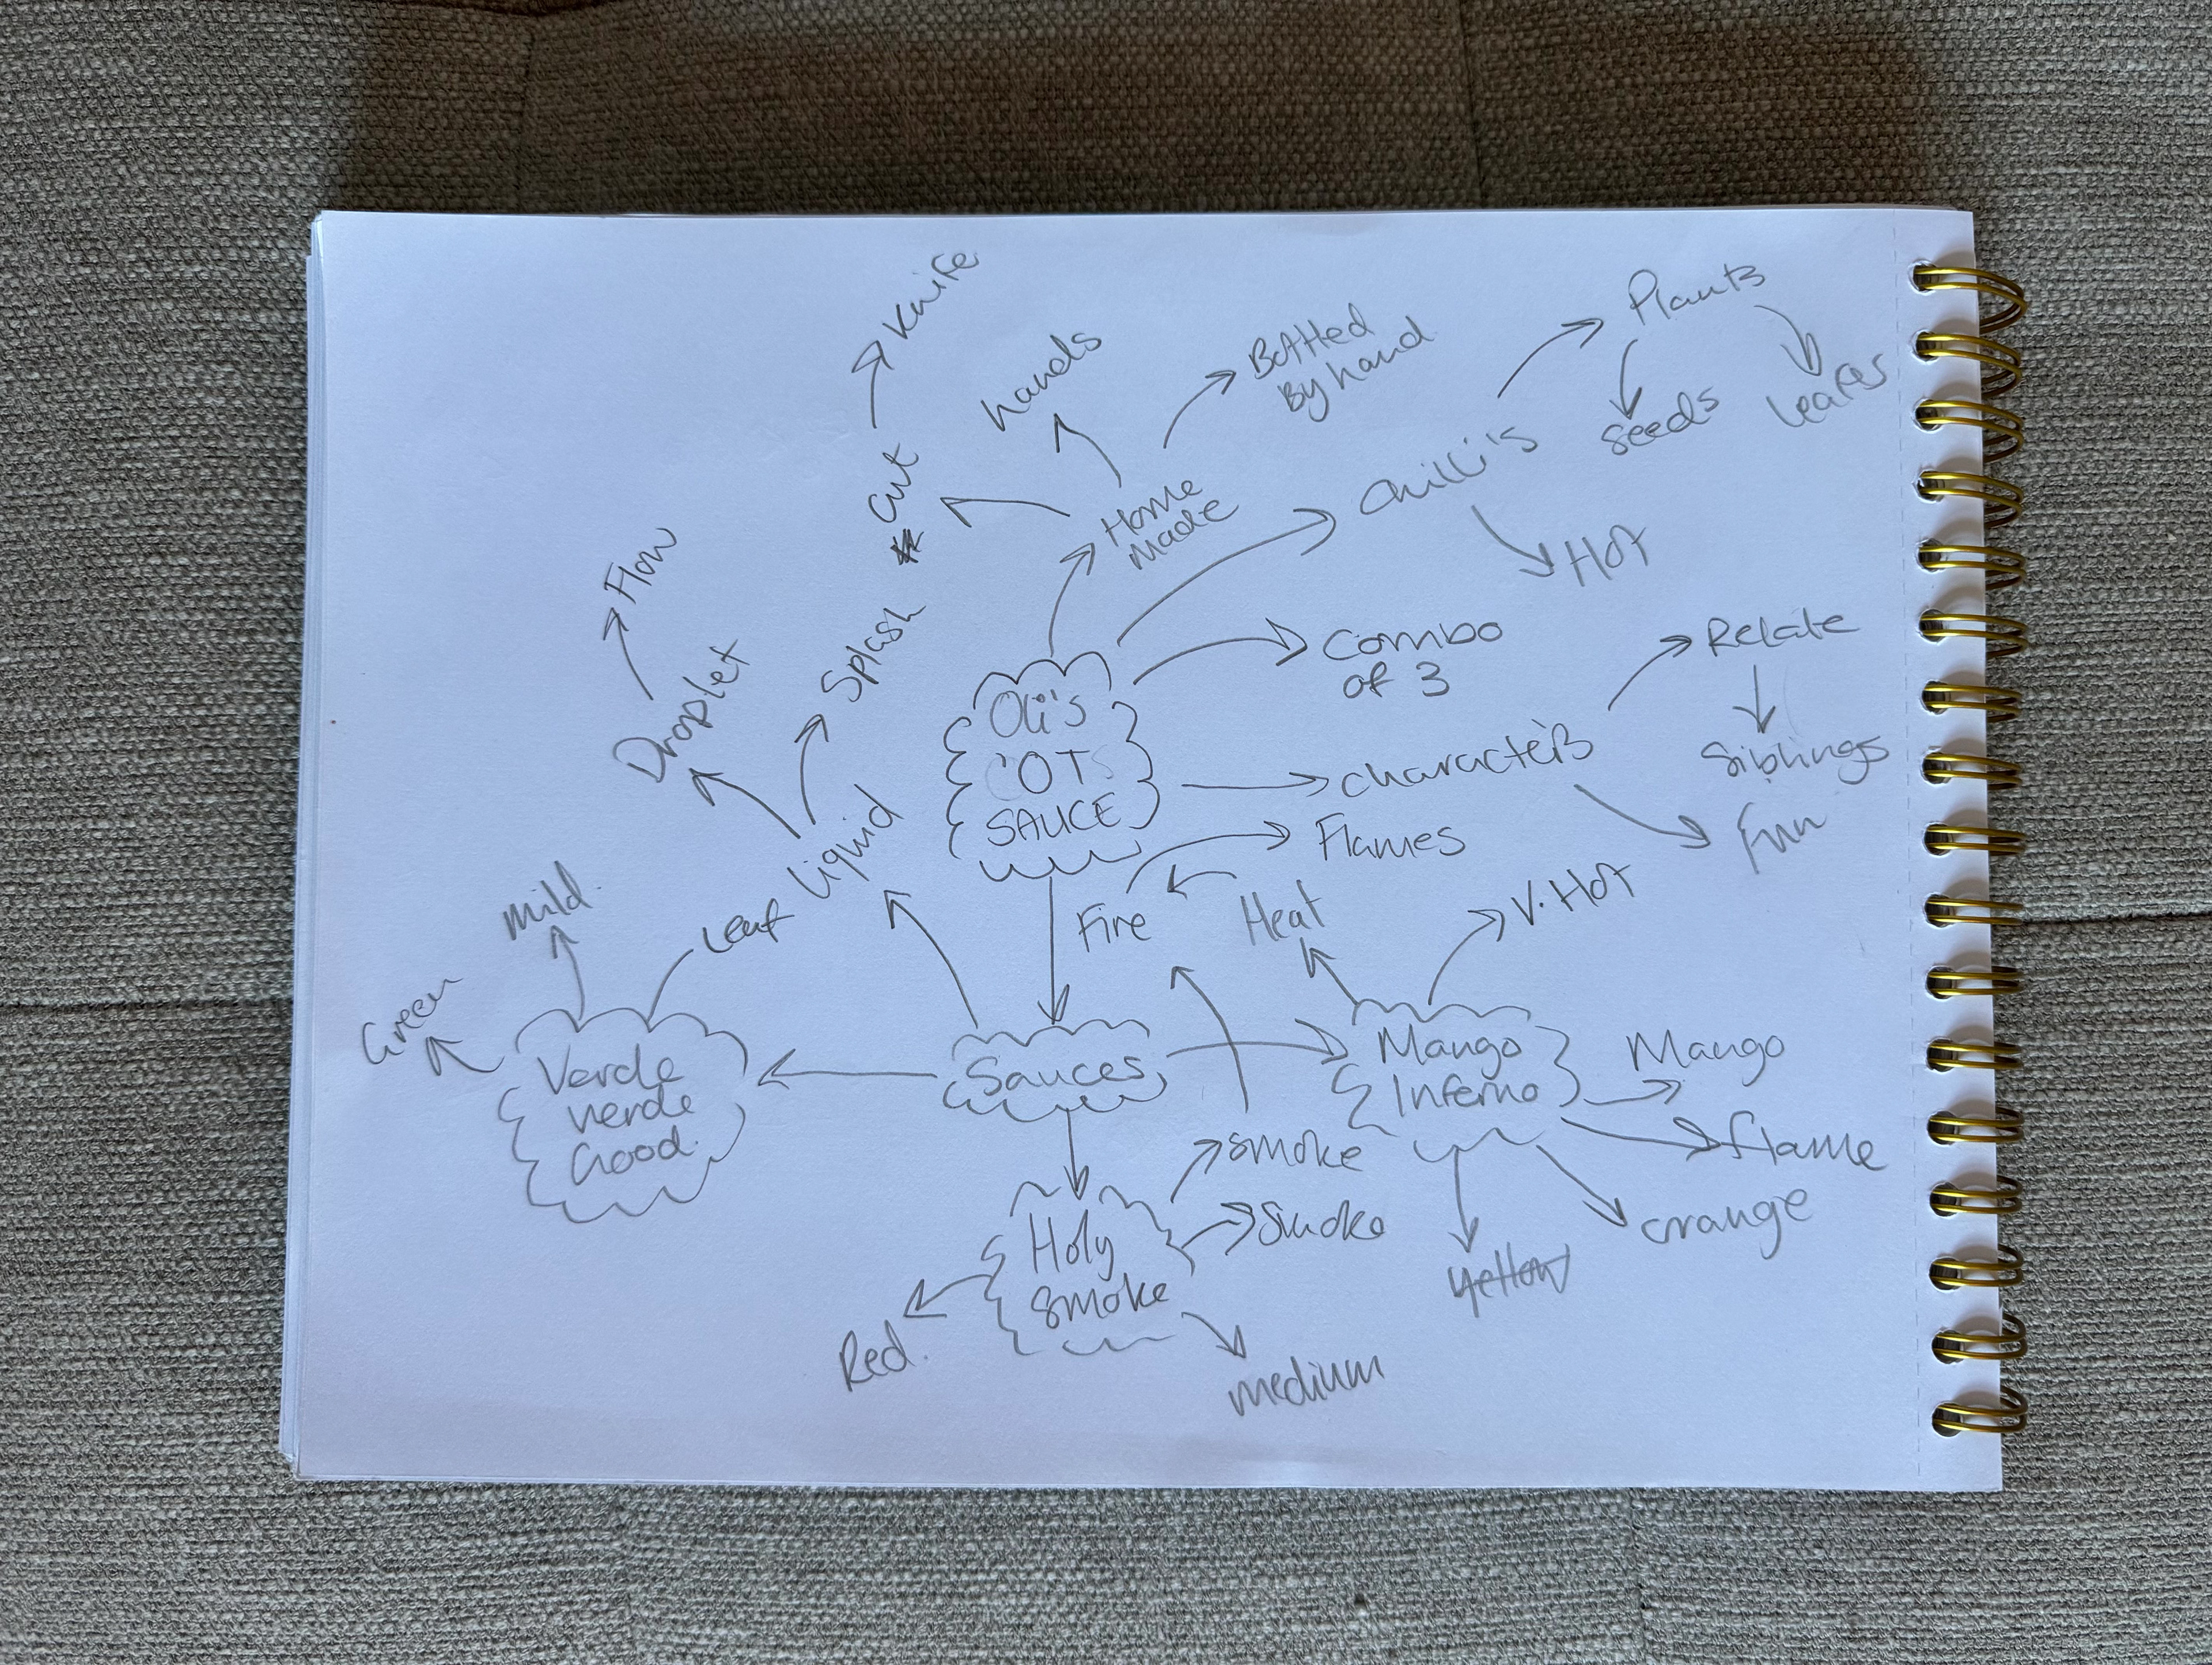 Knife
Cut
hands
Bottled
By hand
Plants
seeds
Leafes
Home
Made
Chilli's
HOT
Flow
Droplet
Splash
Liquid
Oli's
'OT
SAUCE
Combo
of 3
Characters
Relate
Siblings
Fun
Flames
Fire
Heat
V. HOT
Mild.
Leaf
Green
Verde
verde
Good.
Sauces
Mango
Inferno
Mango
flame
orange
yellow
Smoke
Smoke
Holy
Smoke
Red.
medium